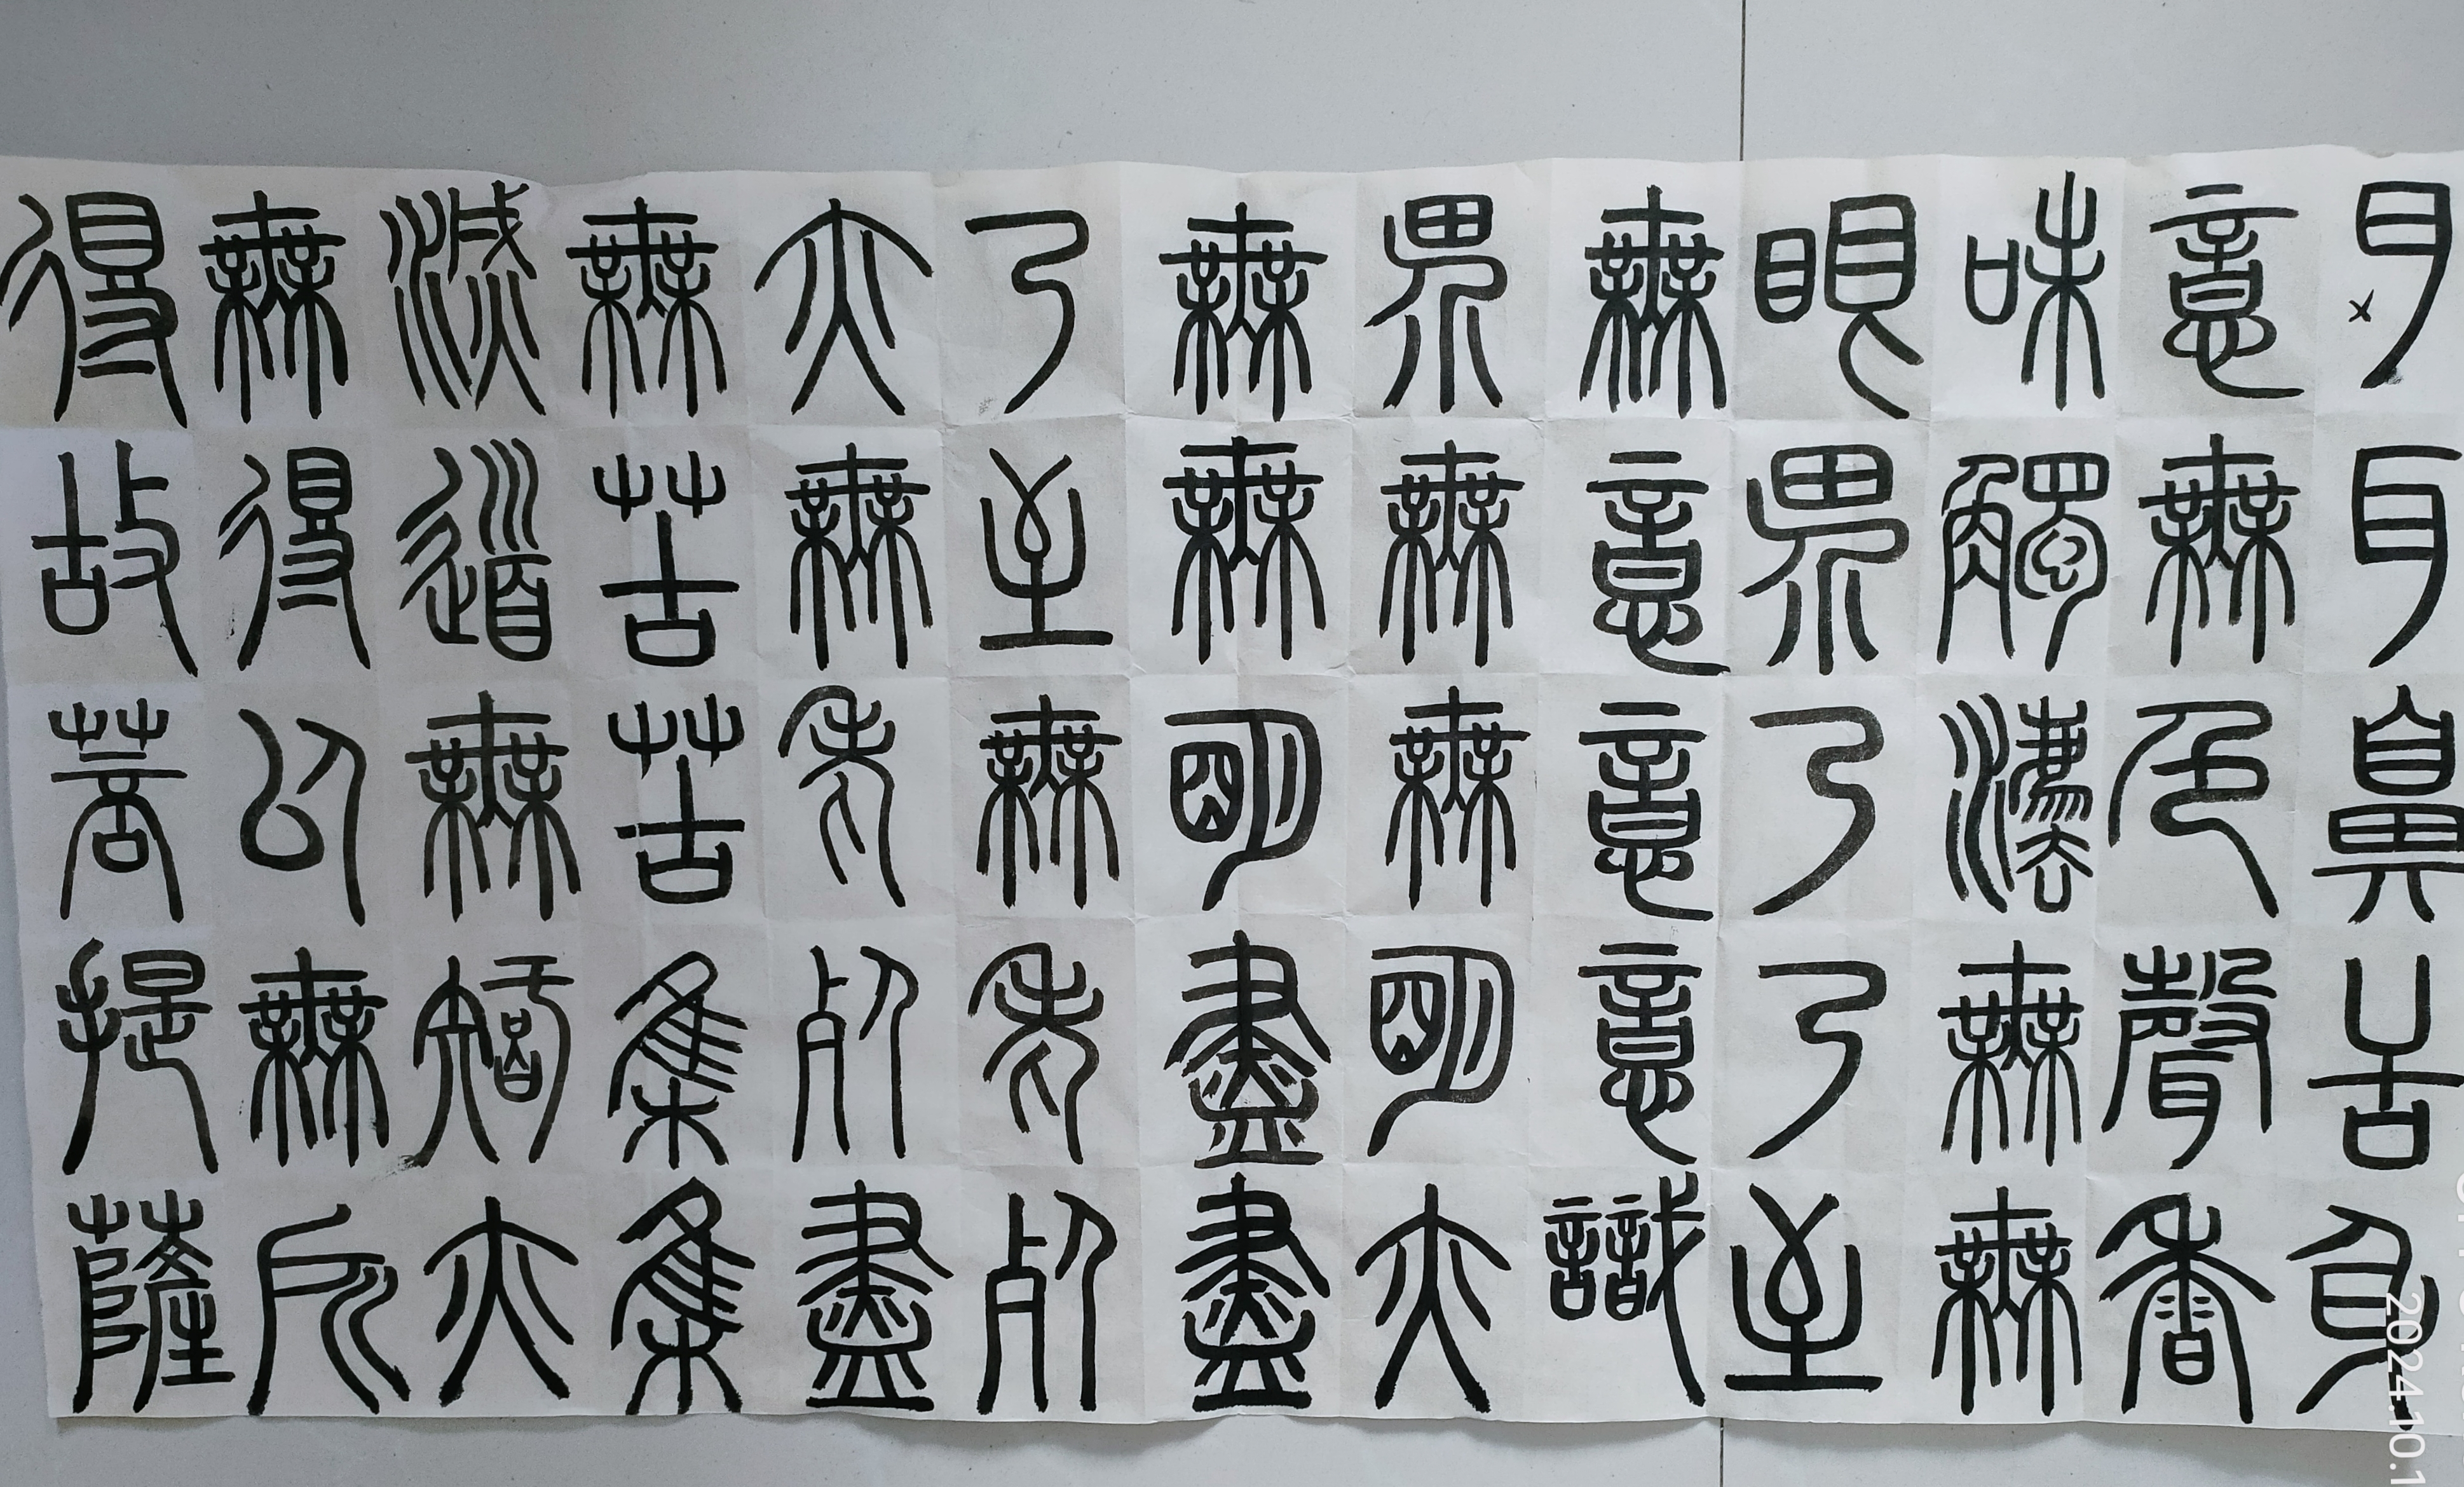 耳鼻舌身
意無色聲香
味觸法無無
眼界乃乃至
無意意意識
界無無明亦
無無明盡盡
乃至無老死
亦無老死盡
無苦苦集集
滅道無智亦
無得以無所
得故菩提薩
2024.10.1